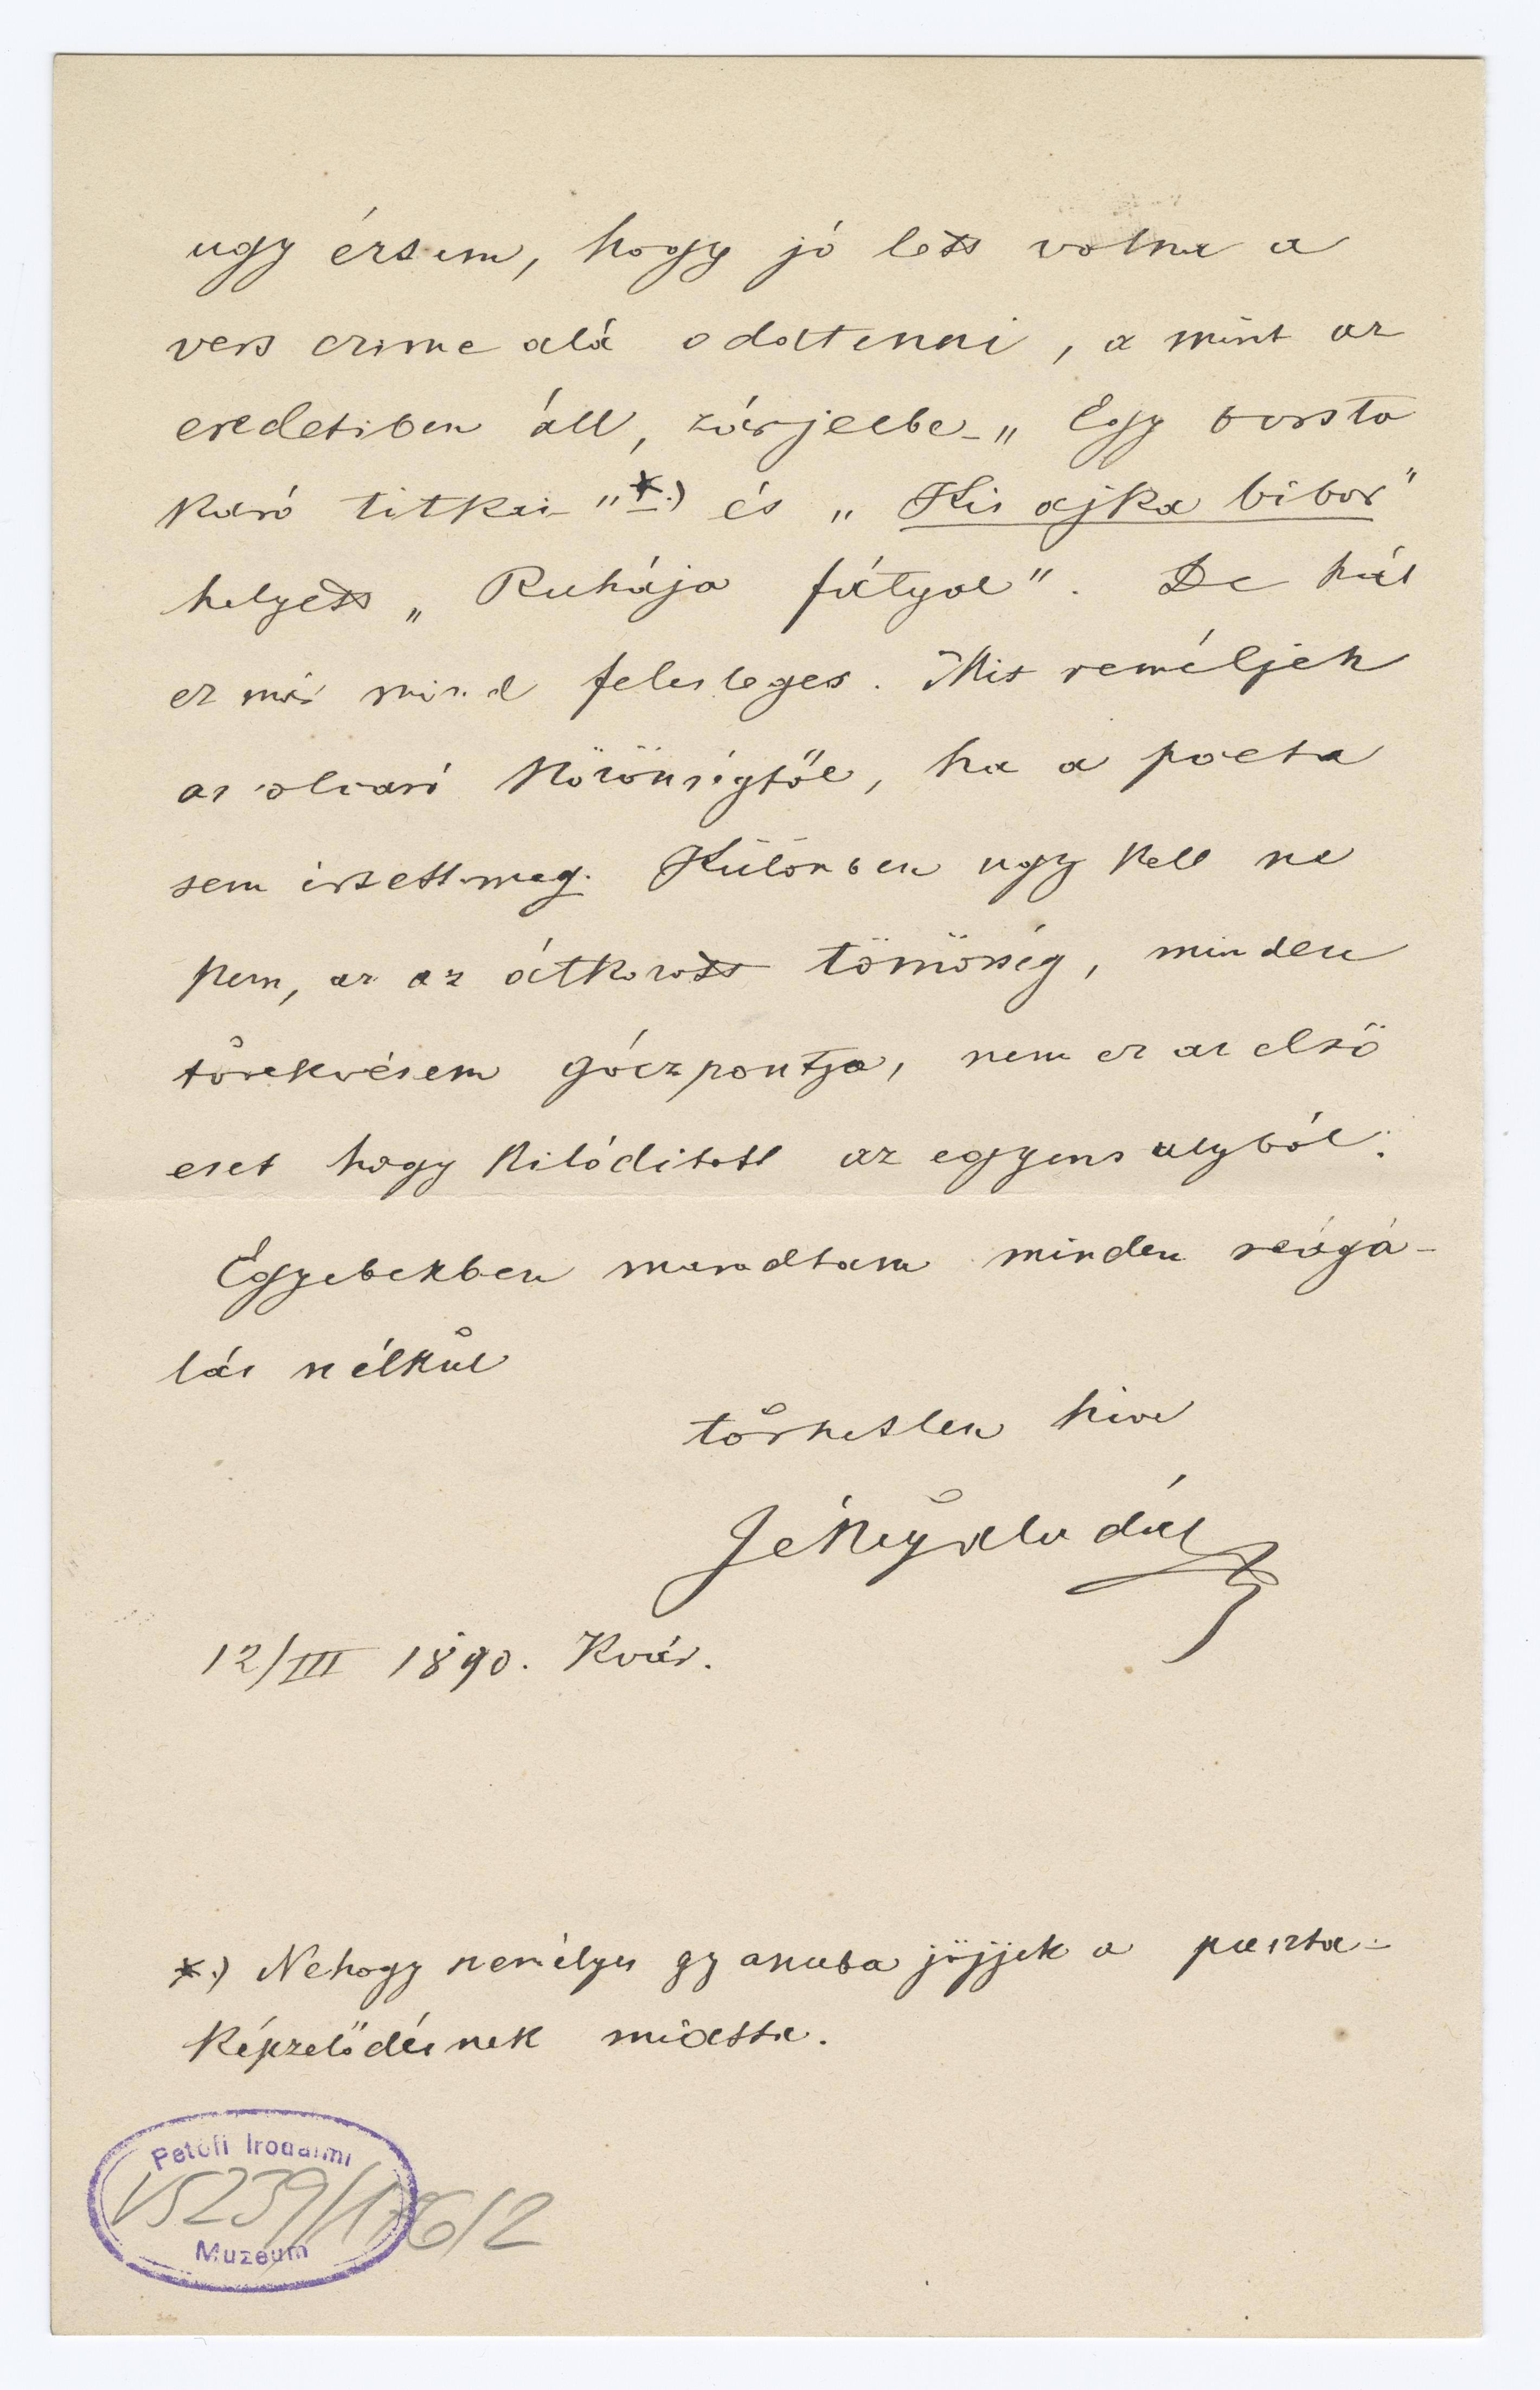 ugy érzem, hogy jó lett volna a
vers czime alá odatenni, a mint az
eredetiben áll, zárjelbe „Egy borsta
karó titkai" *.) és „Kis ajka bibor"
helyett „Ruhája fátyol". De hát
ez már mind felesleges. Mit reméljek
az olvasó közönségtől, ha a poeta
sem értett meg. Különben ugy kell ne
kem, az az átkozott tömösség, minden
törekvésem góczpontja, nem ez az első
eset hogy kilóditott az egyensulyból.
Egyebekben maradtam minden reágá-
lás nélkül
törhetlen hive
Jékey Aladár
12/III 1890. Kvár.
*.) Nehogy személyes gyanuba jöjjek a puszta
képzelődésnek miatta.
Petőfi Irodalmi
V5239/176/2
Muzeum